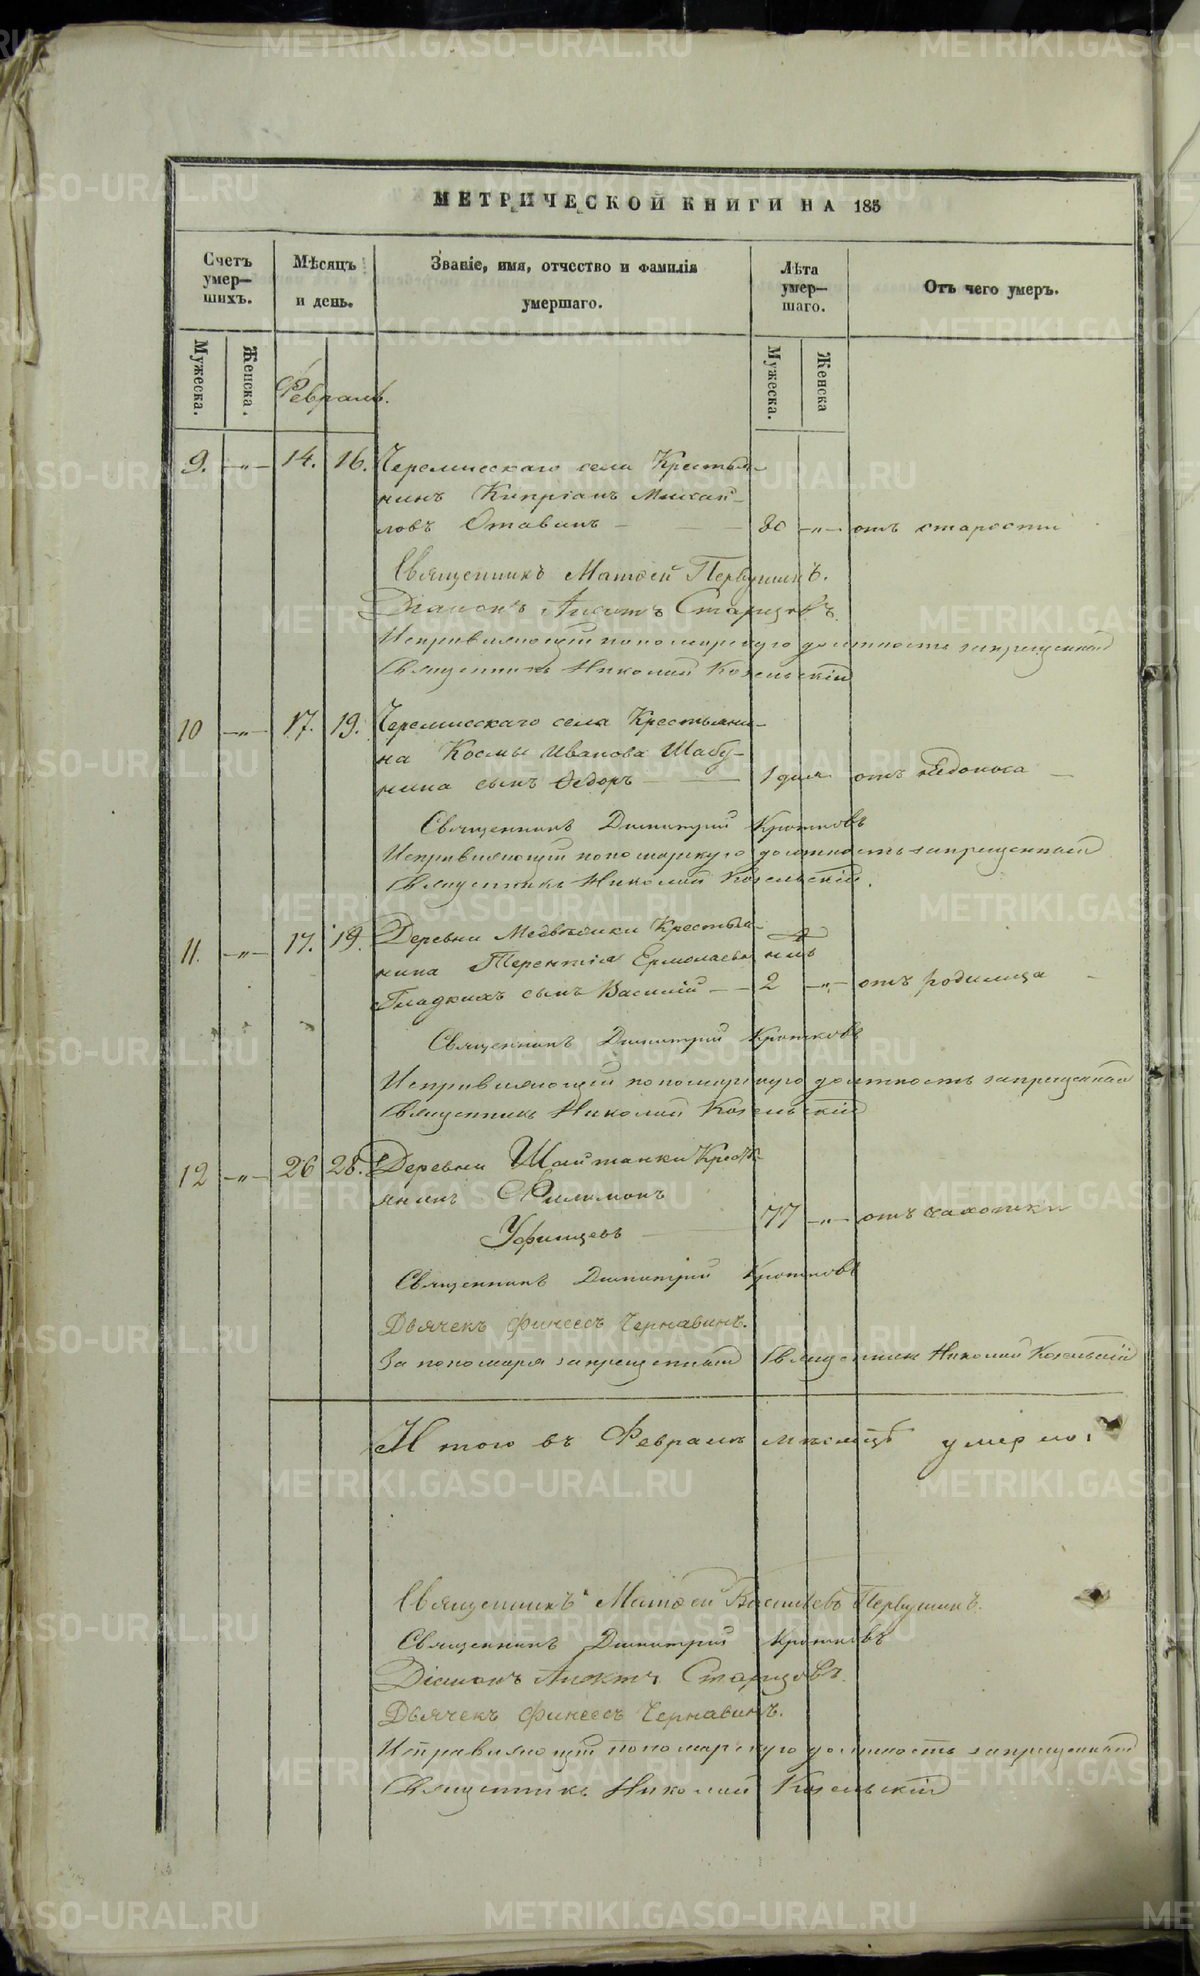 МЕТРИЧЕСКОЙ КНИГИ НА 185
Счетъ умер— шихъ.
Мѣсяцъ и день.
Званіе, имя, отчество и фамилія умершаго.
Лѣта умер— шаго.
Отъ чего умеръ.
Мужеска.
Женска.
Мужеска.
Женска
Февраль.
9. —„— 14. 16. Черемисскаго села Крестья-
нинъ Кипріанъ Михай-
ловъ Отавинъ — 80 —„— отъ старости
Священникъ Матѳей Первушинъ.
Діаконъ Старцовъ.
Исправляющій пономарскую должность запрещенный
Священникъ Николай Козельскій
10 —„— 17. 19. Черемисскаго села Крестьяни-
на Космы Иванова Шабу-
нина сынъ Ѳедоръ — 1 дня отъ недоноса —
Священникъ Димитрий Кротковъ
Исправляющий пономарскую должность запрещенный
Священникъ Николай Козельскій.
11. —„— 17. 19. Деревни Медвѣдики Крестья-
нина Терентія Ермолаева
Гладкихъ сынъ Василій — 2 —„— отъ родимца
Священникъ Димитрий Кротковъ
Исправляющій пономарскую должность запрещенный
Священникъ Николай Козельскій
12 —„— 26 28. Деревни Шайтанки Крестья-
янинъ Филимонъ
Уфимцевъ — 77 —„— отъ чахотки
Священникъ Димитрий Кротковъ
Дьячекъ Финеесъ Чернавинъ.
За пономаря запрещенный Священник Николай Козельскій
Итого въ Февралѣ мѣсяцѣ умерло:
Священникъ Матѳей Васильевъ Первушинъ.
Священникъ Димитрий Кротковъ
Діаконъ Старцовъ.
Дьячекъ Финеесъ Чернавинъ.
Исправляющій пономарскую должность запрещенный
Священникъ Николай Козельскій
METRIKI.GASO-URAL.RU